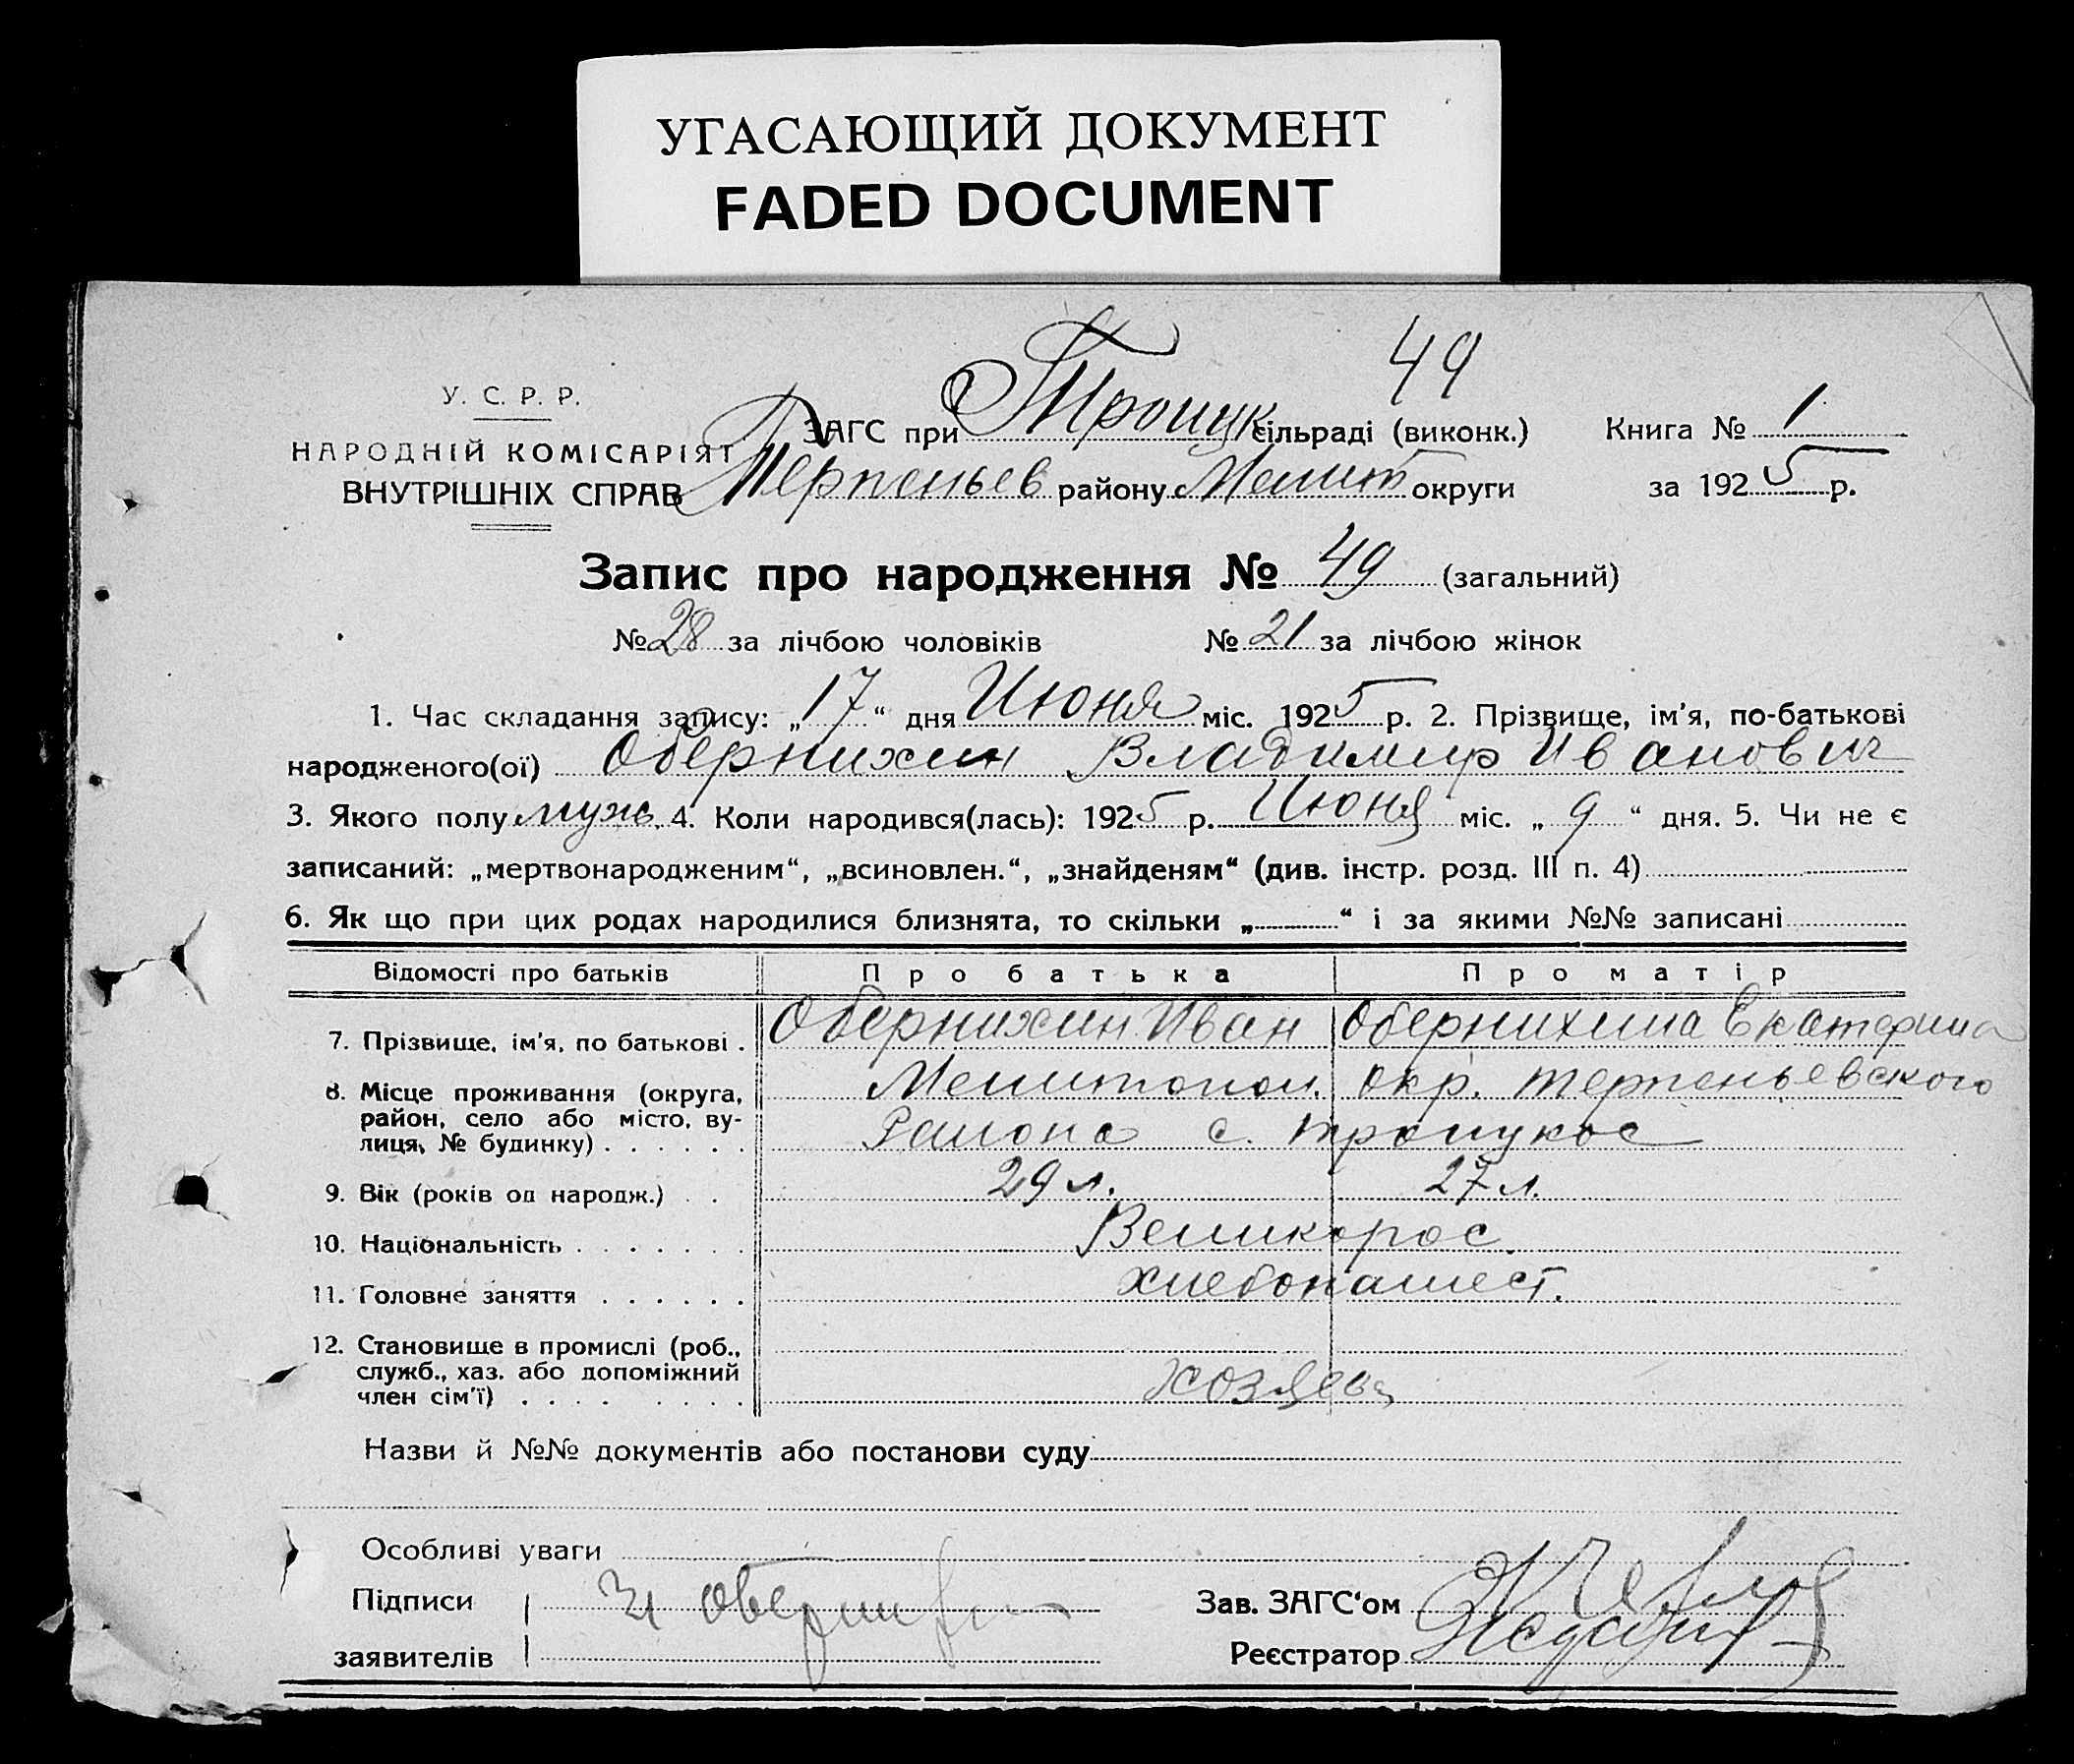 УГАСАЮЩИЙ ДОКУМЕНТ
FADED DOCUMENT
49
У. С. Р. Р.
НАРОДНІЙ КОМІСАРІЯТ
ВНУТРІШНІХ СПРАВ
ЗАГС при Троицк сільраді (виконк.)
Терпеньев району Мелит округи
Книга № 1
за 1925 р.
Запис про народження № 49 (загальний)
№ 28 за лічбою чоловіків № 21 за лічбою жінок
1. Час складання запису: „17“ дня Июня міс. 1925 р. 2. Прізвище, ім’я, по-батькові
народженого(ої) Обернихин Владимир Иванович
3. Якого полу муж. 4. Коли народився(лась): 1925 р. Июня міс. „9“ дня. 5. Чи не є
записаний: „мертвонародженим“, „всиновлен.“, „знайденям“ (див. інстр. розд. III п. 4)
6. Як що при цих родах народилися близнята, то скільки „ “ і за якими №№ записані
Відомості про батьків Про батька Про матір
7. Прізвище, ім’я, по батькові . Обернихин Иван Обернихина Екатерина
8. Місце проживання (округа, Мелитопол. окр. Терпеньевского
район, село або місто, ву-
лиця, № будинку) . . . . . . Района с. Троицкое
9. Вік (років од народж.) . . 29 л. 27 л.
10. Національність . . . . . . . Великорос.
11. Головне заняття . . . . . . хлебопашест.
12. Становище в промислі (роб.,
служб., хаз. або допоміжний
член сім’ї) . . . . . . . . Хозяева
Назви й №№ документів або постанови суду
Особливі уваги
Підписи
заявителів
Зав. ЗАГС‘ом
Реєстратор